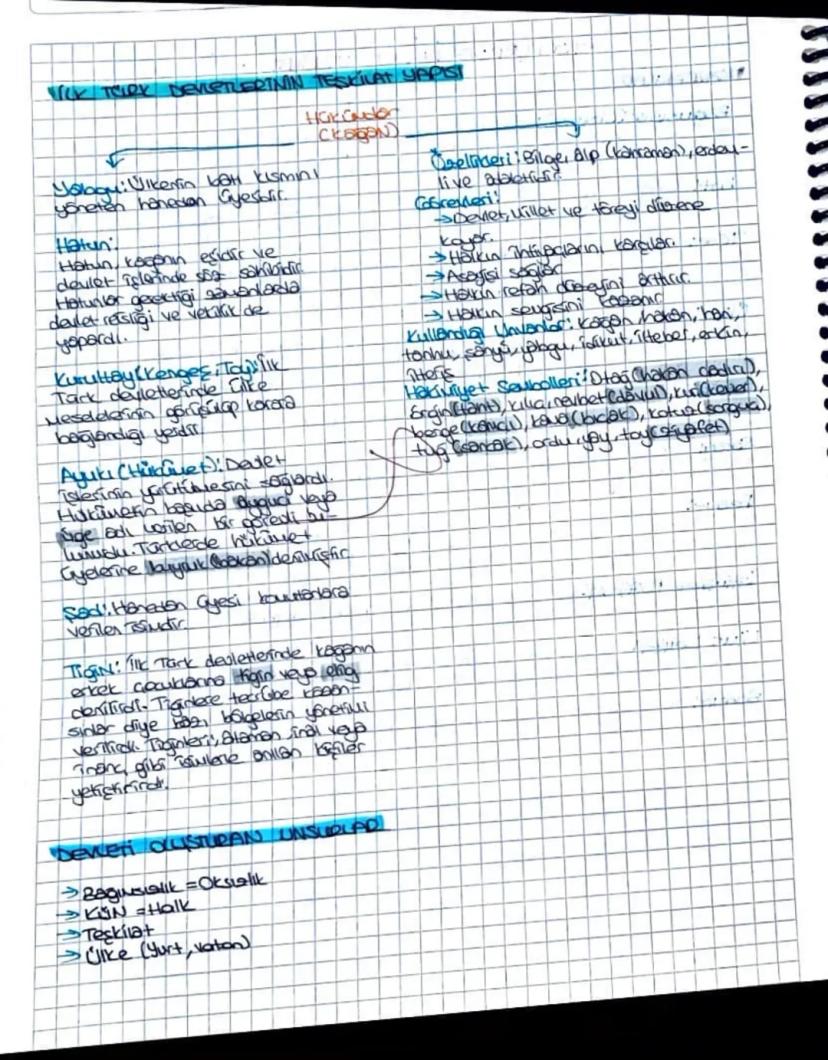 İLK TÜRK DEVLETLERİNİN TEŞKİLAT YAPISI
Hükümdar
(Kağan)
Yabgu: Ülkenin batı kısmını
yöneten hanedan üyesidir.
Hatun:
Hatun, kağanın eşidir ve
devlet işlerinde söz sahibidir.
Hatunlar gerektiği zamanlarda
devlet reisliği ve vekillik de
yapardı.
Kurultay (Kengeş, Toy): İlk
Türk devletlerinde ülke
meselelerinin görüşülüp karara
bağlandığı yerdir.
Ayukı (Hükümet): Devlet
işlerinin yürütülmesini sağlardı.
Hükümetin başında aygucı veya
üge adı verilen bir görevli bu-
lunurdu. Türklerde hükümet
üyelerine buyruk (bakan) denilmiştir.
Şad: Hanedan üyesi komutanlara
verilen isimdir.
Tigin: İlk Türk devletlerinde kağanın
erkek çocuklarına tigin veya
denilirdi. Tiginlere tecrübe kazan-
sınlar diye bazı bölgelerin yönetimi
verilirdi. Tiginleri, ataman, inal veya
inanç gibi isimlerle anılan kişiler
yetiştirirdi.
Özellikleri: Bilge, Alp (kahraman), erdem-
li ve adaletlidir.
Görevleri:
→ Devlet, millet ve töreyi düzene
koyar.
→ Halkın ihtiyaçlarını karşılar.
→ Asayişi sağlar.
→ Halkın refah düzeyini arttırır.
→ Halkın sevgisini kazanır.
Kullandığı Unvanlar: kağan, hakan, han,
tanhu, şanyü, yabgu, idikut, ilteber, erkin,
ilteriş
Hakimiyet Sembolleri: Otağ (hakan çadırı),
örgin (taht), kılıç, nevbet (davul), kur (kemer),
berge (kamçı), kava (bıçak), kotuz (sorguç),
tuğ (sancak), ordu, yay, toy (ziyafet)
DEVLETİ OLUŞTURAN UNSURLAR
→ Bağımsızlık = Oksızlık
→ KÜN = Halk
→ Teşkilat
→ Ülke (Yurt, vatan)